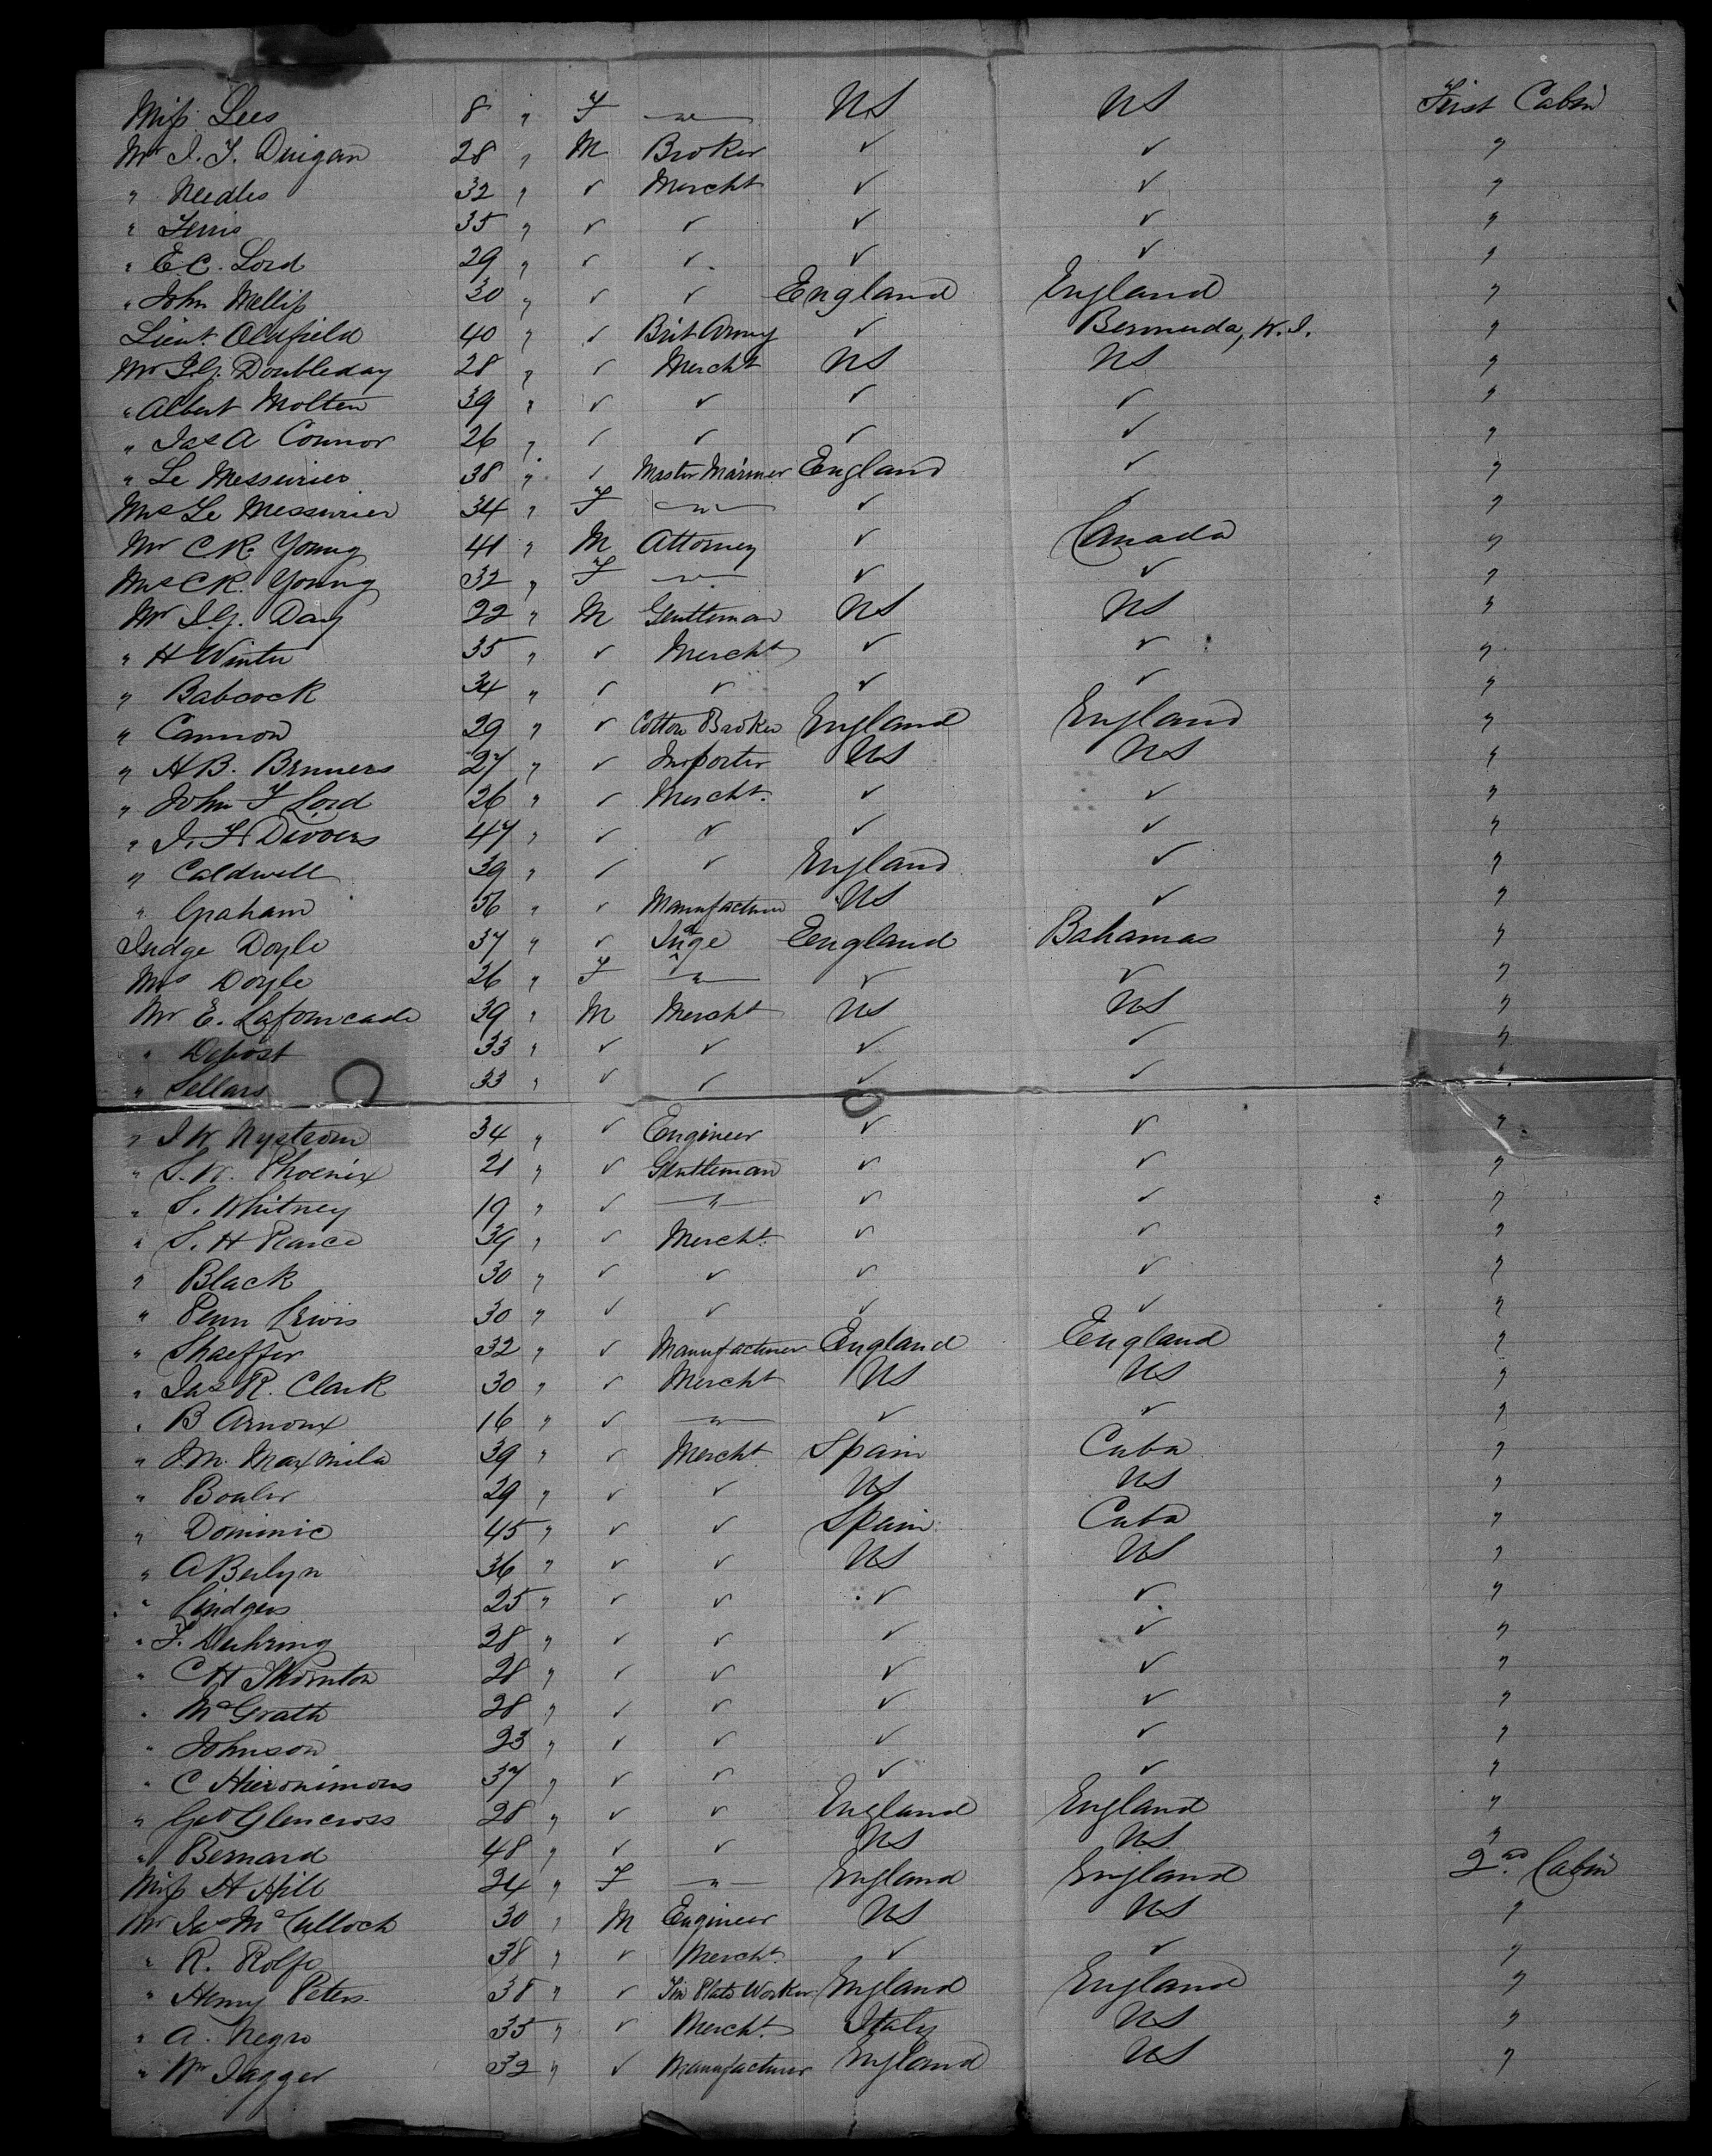 Miss Lees 8 " F — " — US US First Cabin
Mr J. F. Duigan 28 " M Broker ✓ ✓ "
" Needles 32 " ✓ Mercht ✓ ✓ "
" Ferris 35 " ✓ ✓ ✓ ✓ "
" E.C. Lord 29 " ✓ ✓ ✓ ✓ "
" John Melliss 30 " ✓ ✓ England England "
Lieut. Oldfield 40 " ✓ Brit Army ✓ Bermuda, W.I. "
Mr J.G. Doubleday 28 " ✓ Mercht US US "
" Albert Molten 39 " ✓ ✓ ✓ ✓ "
" Jas A Connor 26 " ✓ ✓ ✓ ✓ "
" Le Messurier 38 " ✓ Master Mariner England ✓ "
Mrs Le Messurier 34 " F — " — ✓ ✓ "
Mr C R. Young 41 " M Attorney ✓ Canada "
Mrs C R. Young 32 " F — " — ✓ ✓ "
Mr J.G. Day 22 " M Gentleman US US "
" H Winter 35 " ✓ Mercht ✓ ✓ "
" Babcock 34 " ✓ ✓ ✓ ✓ "
" Cannon 29 " ✓ Cotton Broker England England "
" H B. Brunners 27 " ✓ Importer US US "
" John F Lord 26 " ✓ Mercht. ✓ ✓ "
" J. H. Devoers 47 " ✓ ✓ ✓ ✓ "
" Caldwell 39 " ✓ ✓ England ✓ "
" Graham 36 " ✓ Manufacturer US ✓ "
Judge Doyle 37 " ✓ Judge England Bahamas "
Mrs Doyle 26 " F — " — ✓ ✓ "
Mr E. Lafourcade 39 " M Mercht US US "
" Depost 33 " ✓ ✓ ✓ ✓ "
" Sellars 33 " ✓ ✓ ✓ ✓ "
" J W Nystrom 34 " ✓ Engineer ✓ ✓ "
" S. W. Phoenix 21 " ✓ Gentleman ✓ ✓ "
" S. Whitney 19 " ✓ — " — ✓ ✓ "
" S. H Pearce 39 " ✓ Mercht. ✓ ✓ "
" Black 30 " ✓ ✓ ✓ ✓ "
" Penn Lewis 30 " ✓ ✓ ✓ ✓ "
" Shaeffer 32 " ✓ Manufacturer England England "
" Jas R. Clark 30 " ✓ Mercht US US "
" B Arnoux 16 " ✓ — " — ✓ ✓ "
" J M. Maxmila 39 " ✓ Mercht Spain Cuba "
" Bouler 29 " ✓ ✓ US US "
" Dominic 45 " ✓ ✓ Spain Cuba "
" A Berlyn 36 " ✓ ✓ US US "
" Lindgers 25 " ✓ ✓ ✓ ✓ "
" F. Duhring 28 " ✓ ✓ ✓ ✓ "
" C H Thornton 28 " ✓ ✓ ✓ ✓ "
" McGrath 28 " ✓ ✓ ✓ ✓ "
" Johnson 23 " ✓ ✓ ✓ ✓ "
" C Hieronimous 37 " ✓ ✓ ✓ ✓ "
" Geo Glencross 28 " ✓ ✓ England England "
" Bernard 48 " ✓ ✓ US US "
Miss H Hill 24 " F — " — England England 2nd Cabin
Mr Jas McCulloch 30 " M Engineer US US "
" R. Rolfe 38 " ✓ Mercht. ✓ ✓ "
" Henry Peters 38 " ✓ Tin Plate Worker England England "
" A. Negro 35 " ✓ Mercht. Italy US "
" Wm Jagger 32 " ✓ Manufacturer England US "